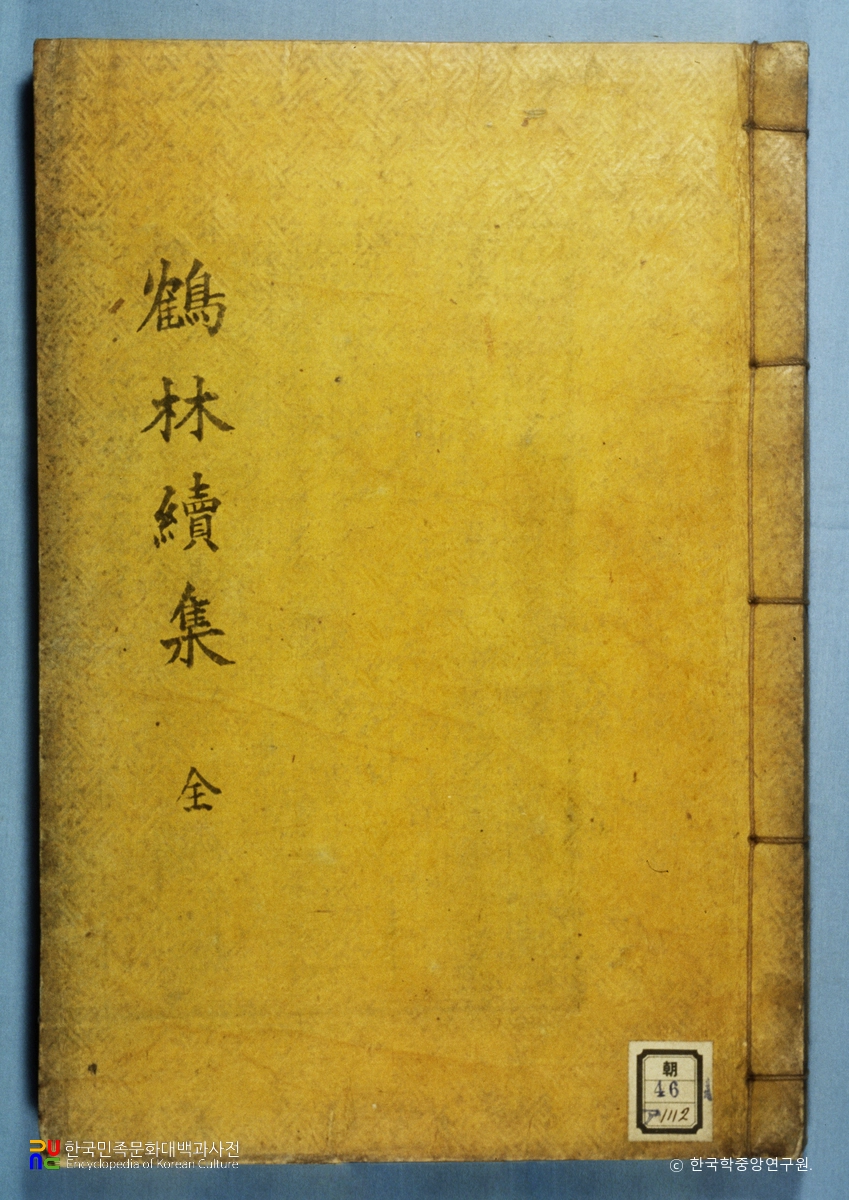 鶴林續集 全
朝
46
1112
한국민족문화대백과사전
Encyclopedia of Korean Culture
© 한국학중앙연구원.